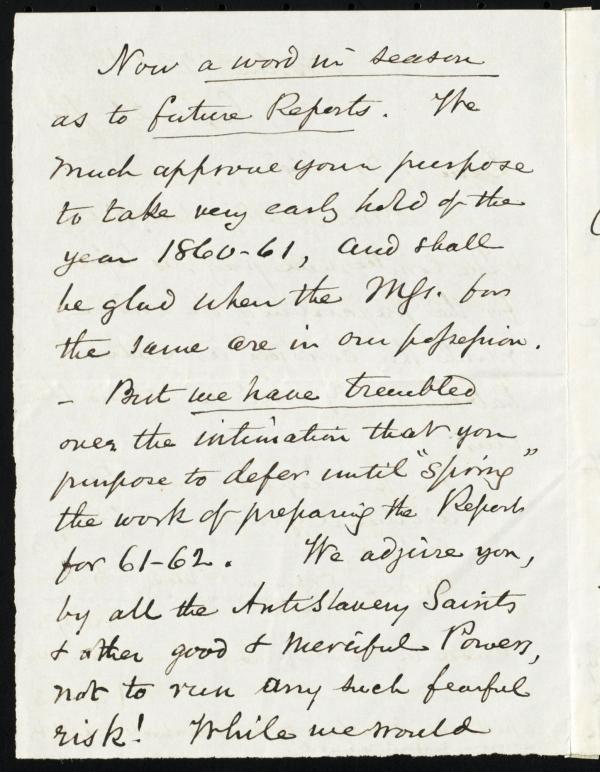 Now a word in season
as to future Reports. We
much approve your purpose
to take very early hold of the
year 1860-61, and shall
be glad when the Mss. for
the same are in our possession.
- But we have trembled
over the intimation that you
purpose to defer until "spring"
the work of preparing the Report
for 61-62. We adjure you,
by all the AntiSlavery Saints
& other good & merciful Powers,
not to run any such fearful
risk! While we would